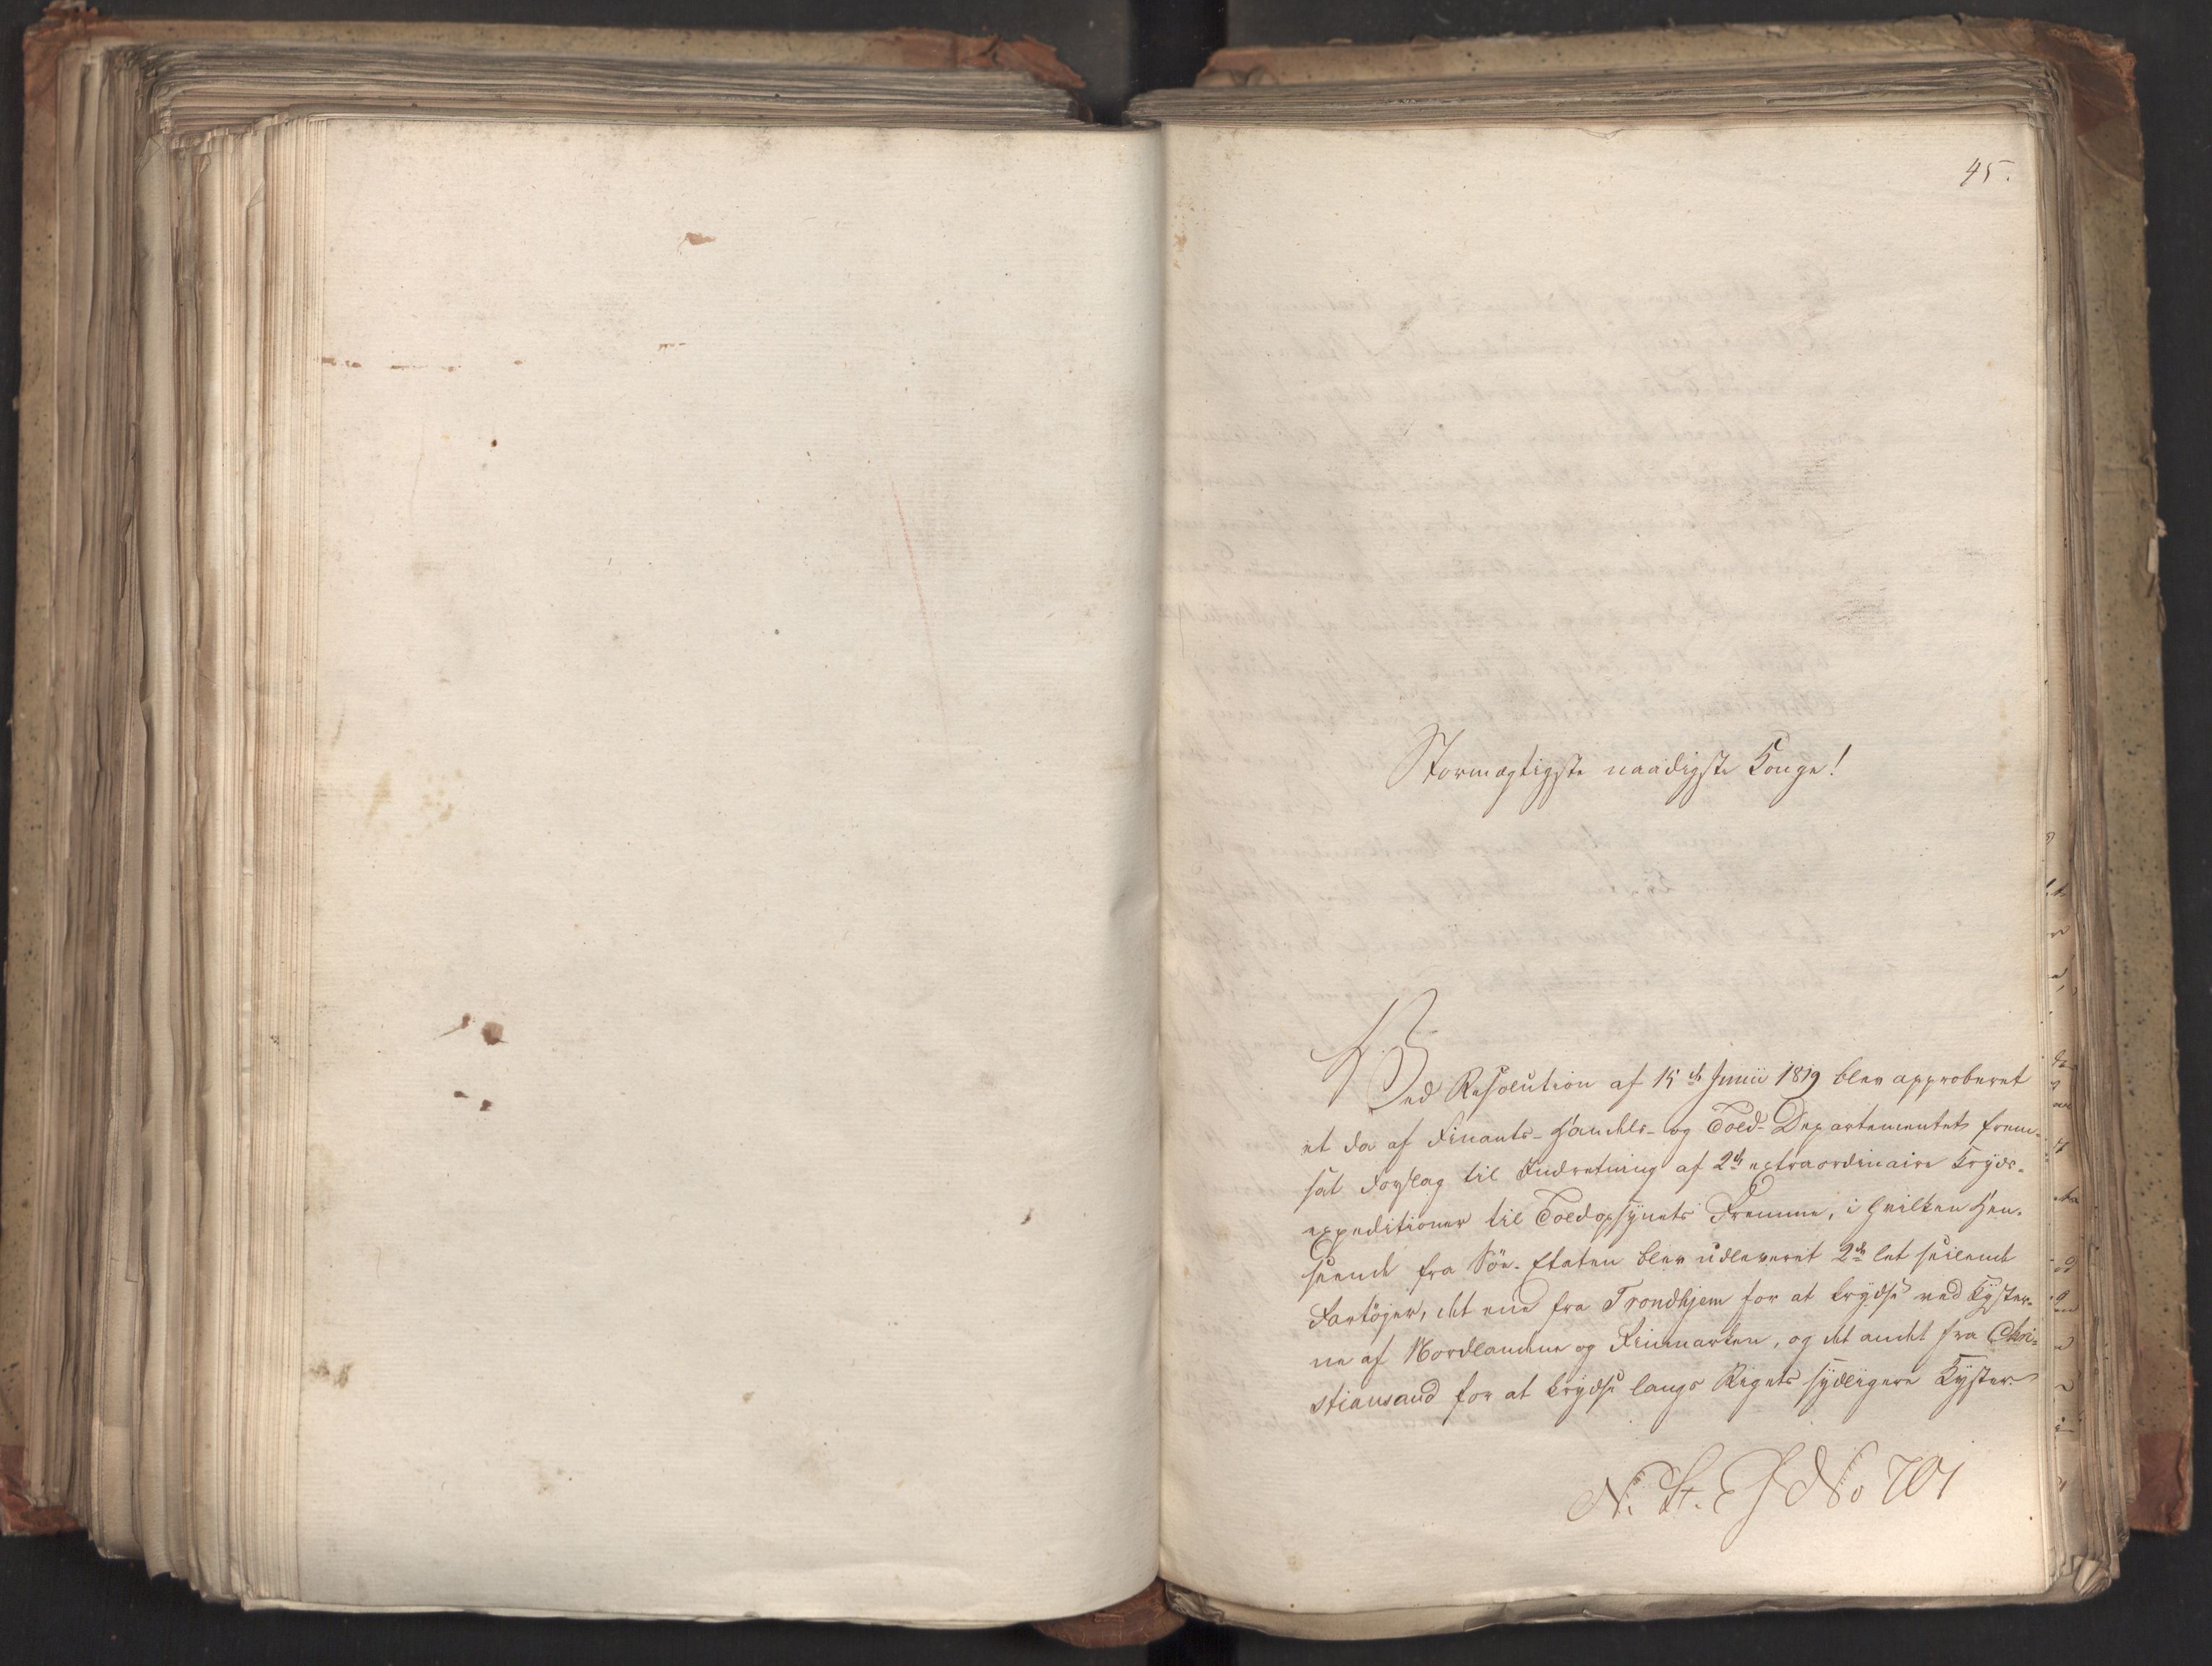 45.
Stormægtigste naadigste Konge!
Ved Resolution af 15de Junii 1819 blev approberet
et da af Finants- Handels- og Told-Departementet frem-
sat Forslag til Indretning af 2de extraordinaire Kryds-
expeditioner til Toldopsynets Fremme, i hvilken Hen-
seende fra Söe-Etaten blev udleveret 2de let seilende
Fartöjer, det ene fra Trondhjem for at krydse ved Kyster-
ne af Nordlandene og Finmarken, og det andet fra Chri-
stiansand for at krydse langs Rigets sydligere Kyster
N. St. No 701